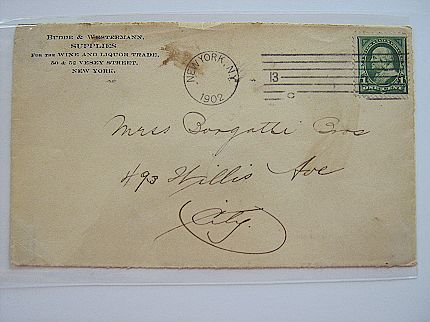 Budde & Westermann,
SUPPLIES
For the WINE AND LIQUOR TRADE,
50 & 52 VESEY STREET,
NEW YORK.
NEW YORK, N.Y.
1902
3
1 1
Mess Borgotthi Bros
493 Willis Ave
City.